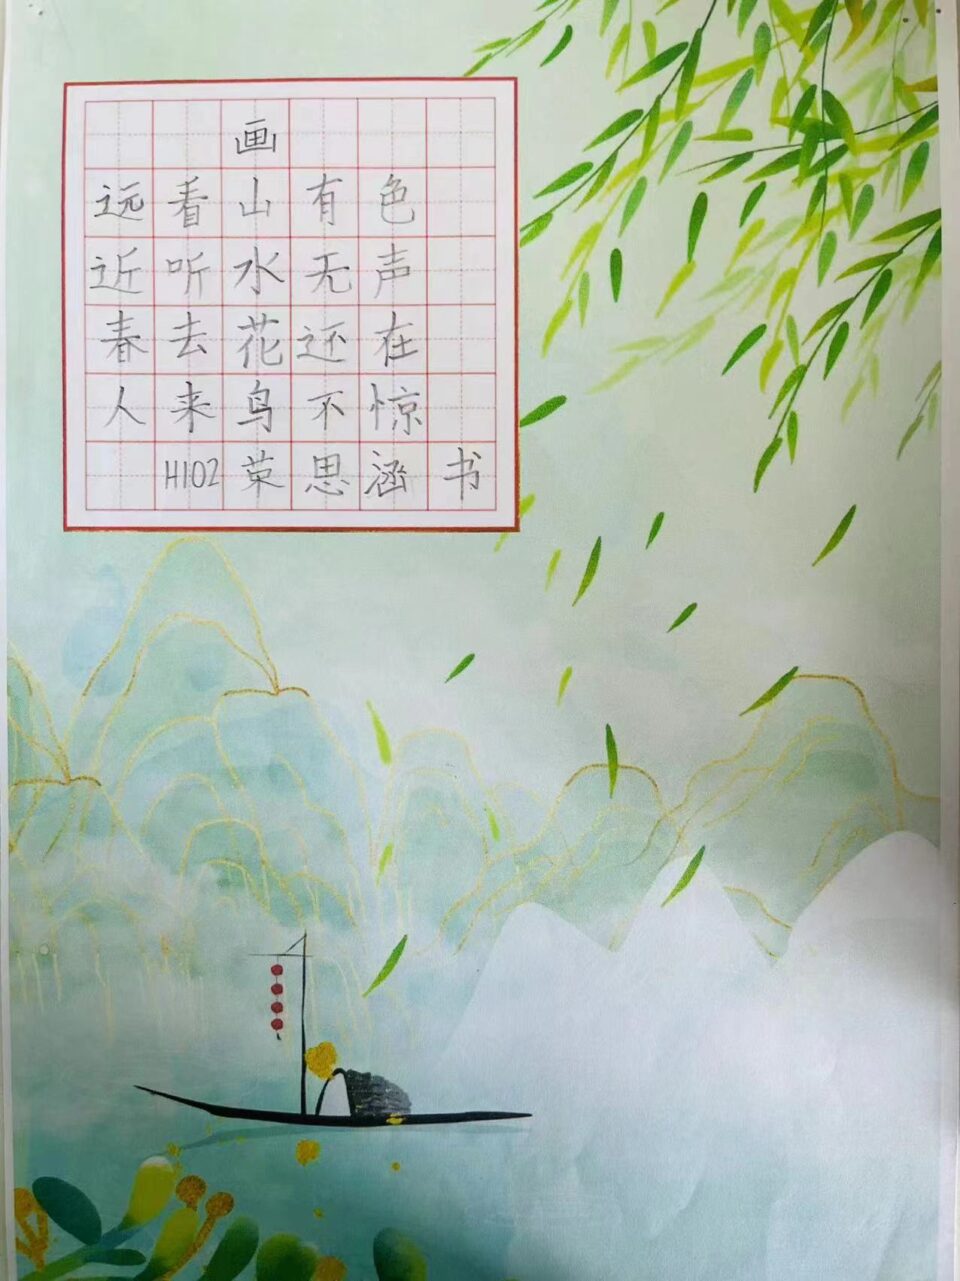 画
远看山有色
近听水无声
春去花还在
人来鸟不惊
H102荣思涵书